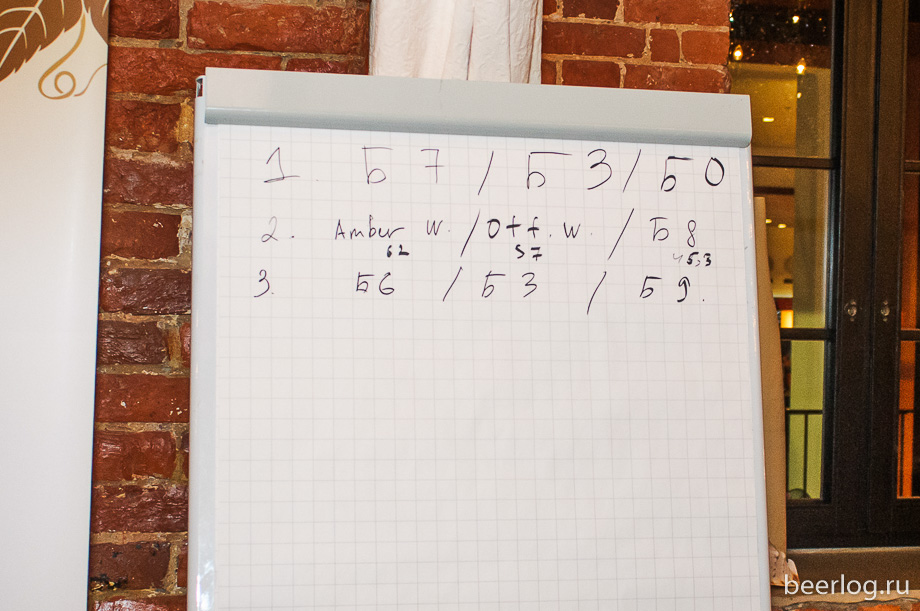 1. Б 7 / Б 3 / Б 0
2. Amber W. / Ott. W. / Б 8
62 57 45,3
3. Б6 / Б 3 / Б 9.
beerlog.ru